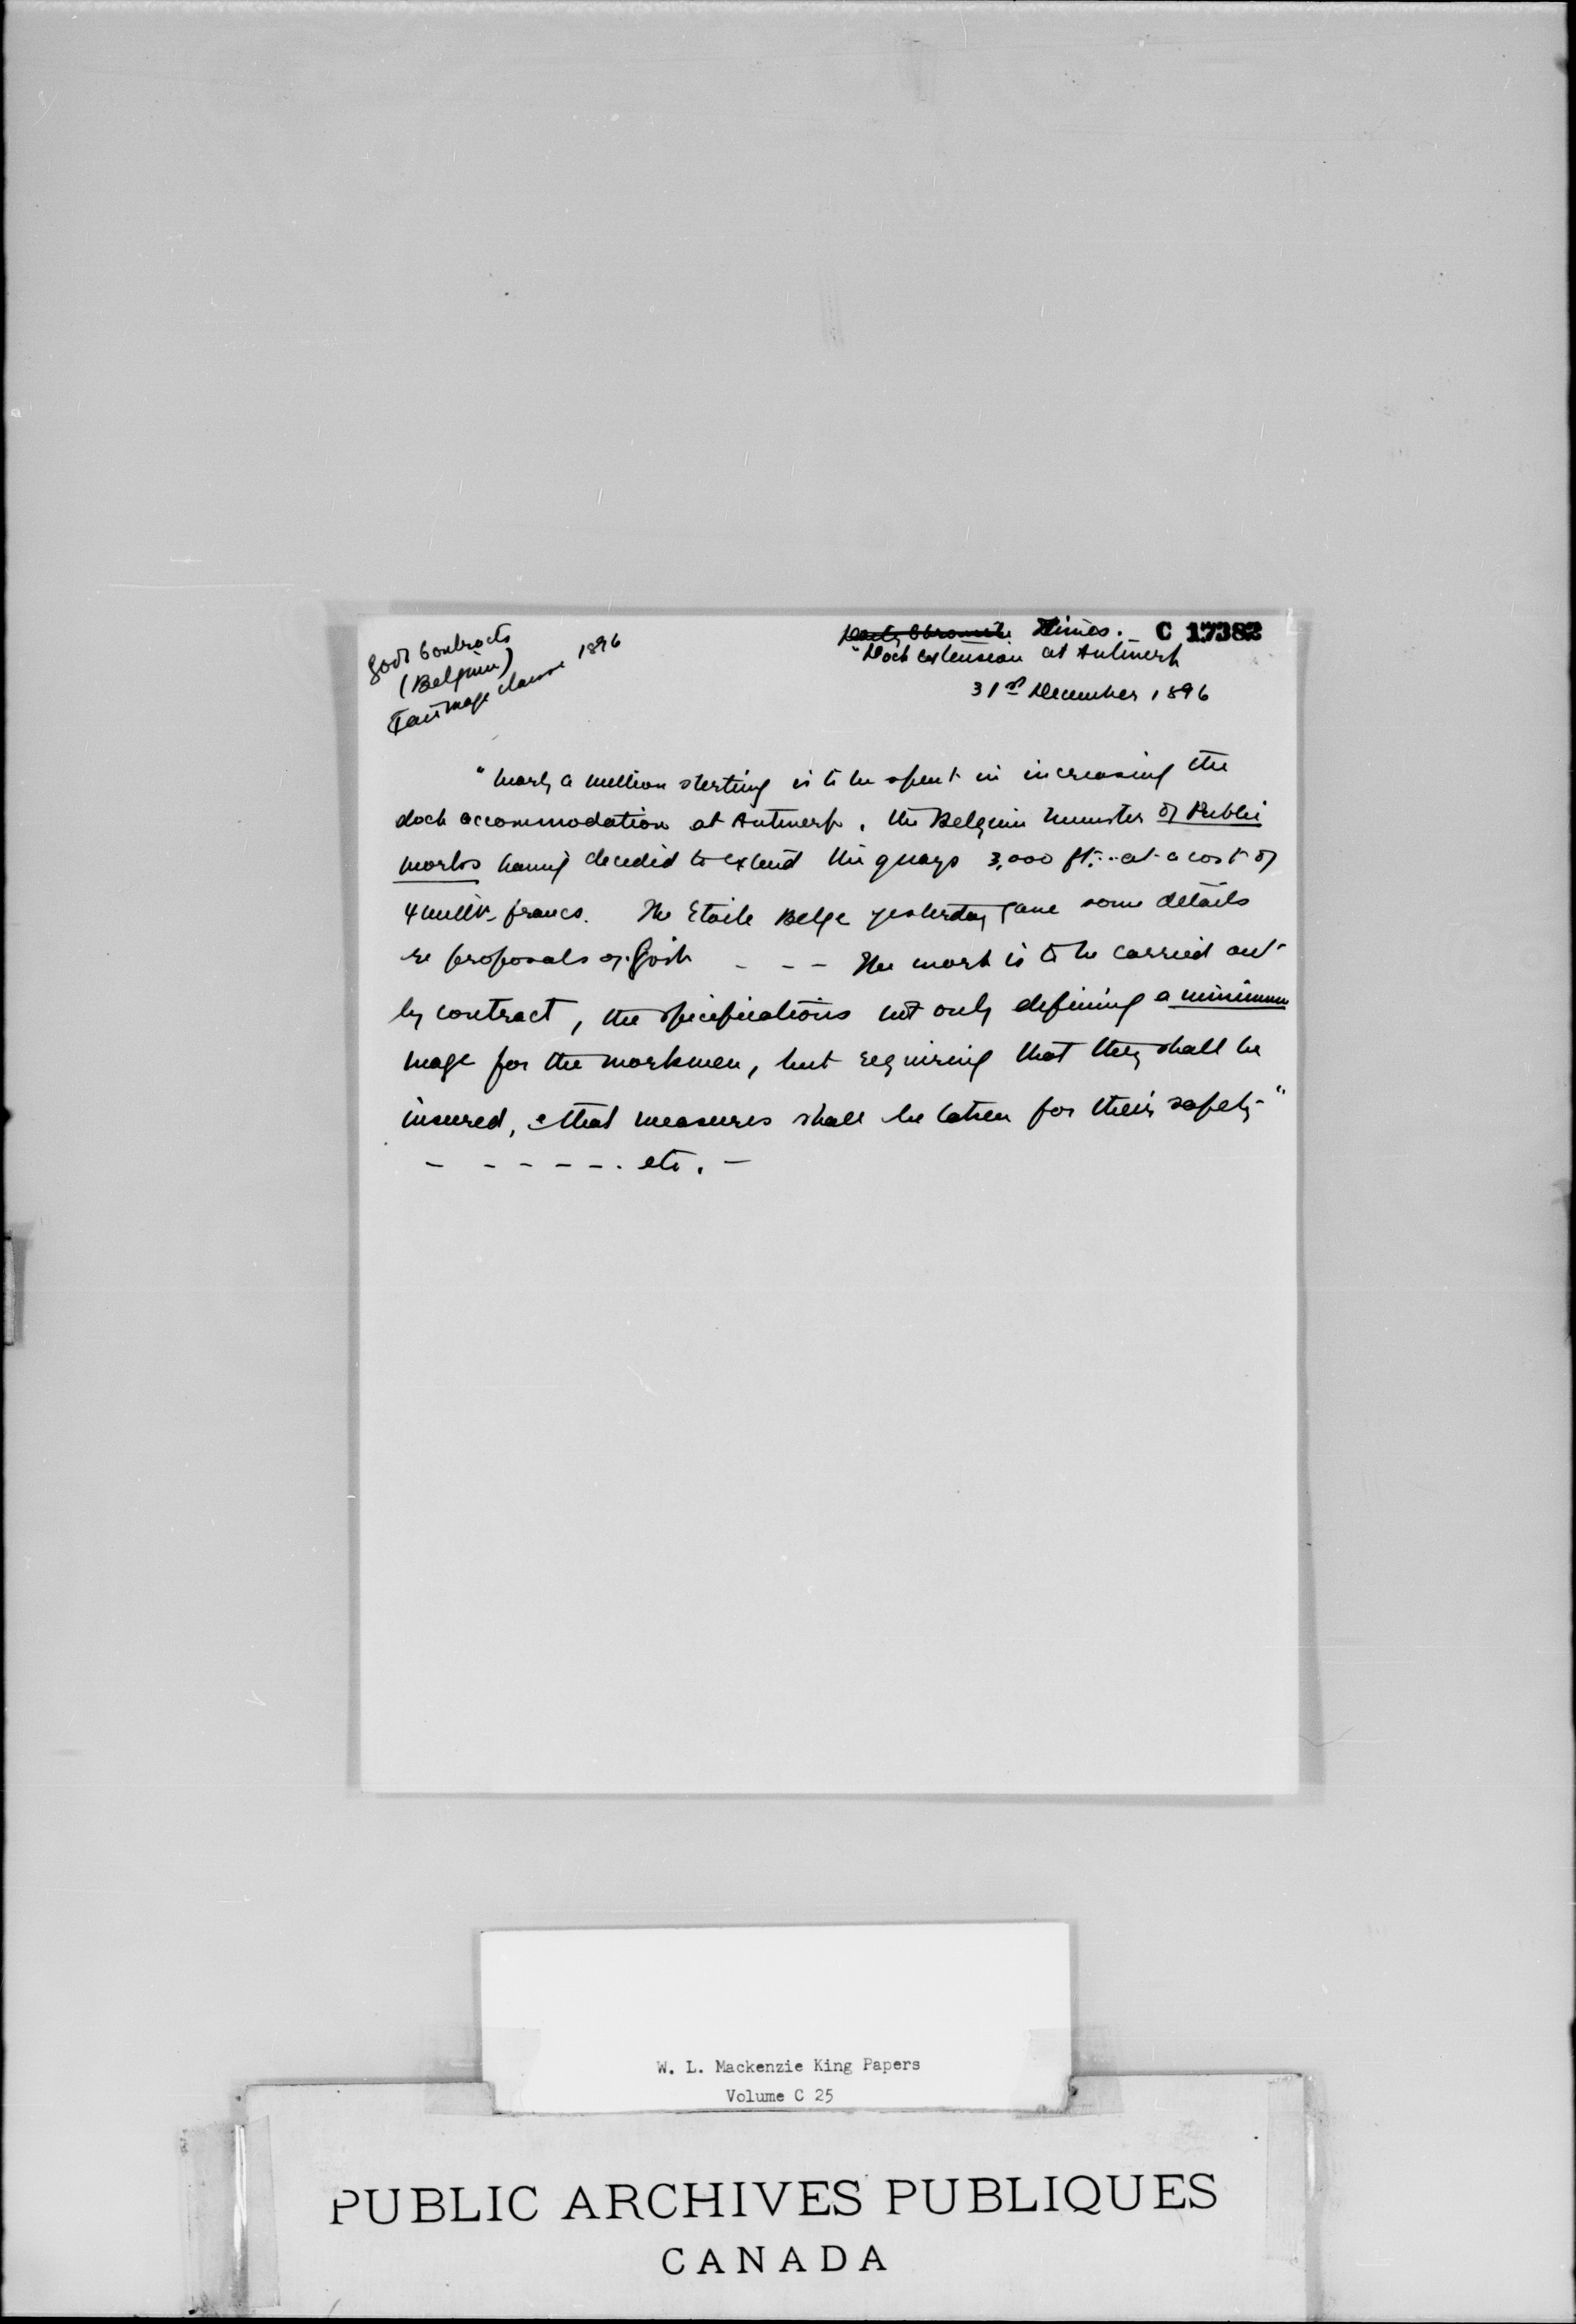 Govt Contracts
(Belgium)
Fair Wage Clause 1896
Daily Chronicle Times. - C 17382
"Dock extension at Antwerp
31st December 1896
"Nearly a million sterling is to be spent in increasing the
dock accommodation at Antwerp, the Belgian Minister of Public
Works having decided to extend the quays 3,000 ft. .. at a cost of
4 milln. francs. The Etoile Belge yesterday gave some details
re proposals of Govt - - - The work is to be carried out
by contract, the specifications not only defining a minimum
wage for the workmen, but requiring that they shall be
insured, & that measures shall be taken for their safety"
- - - - - -. etc. -
W. L. Mackenzie King Papers
Volume C 25
PUBLIC ARCHIVES PUBLIQUES
CANADA